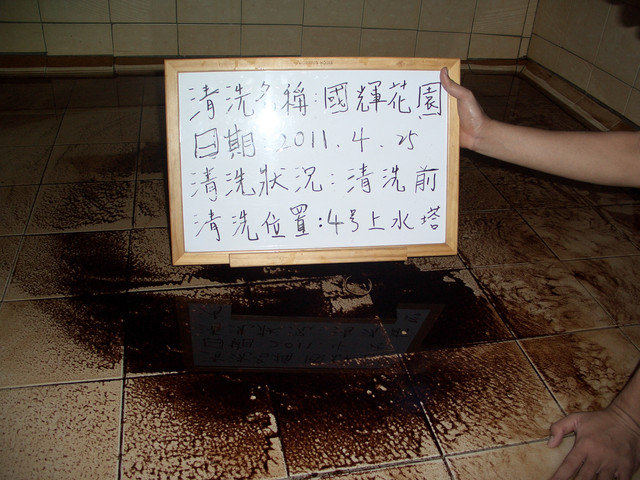 清洗名稱:國輝花園
日期 2011.4.25
清洗狀況:清洗前
清洗位置:4号上水塔